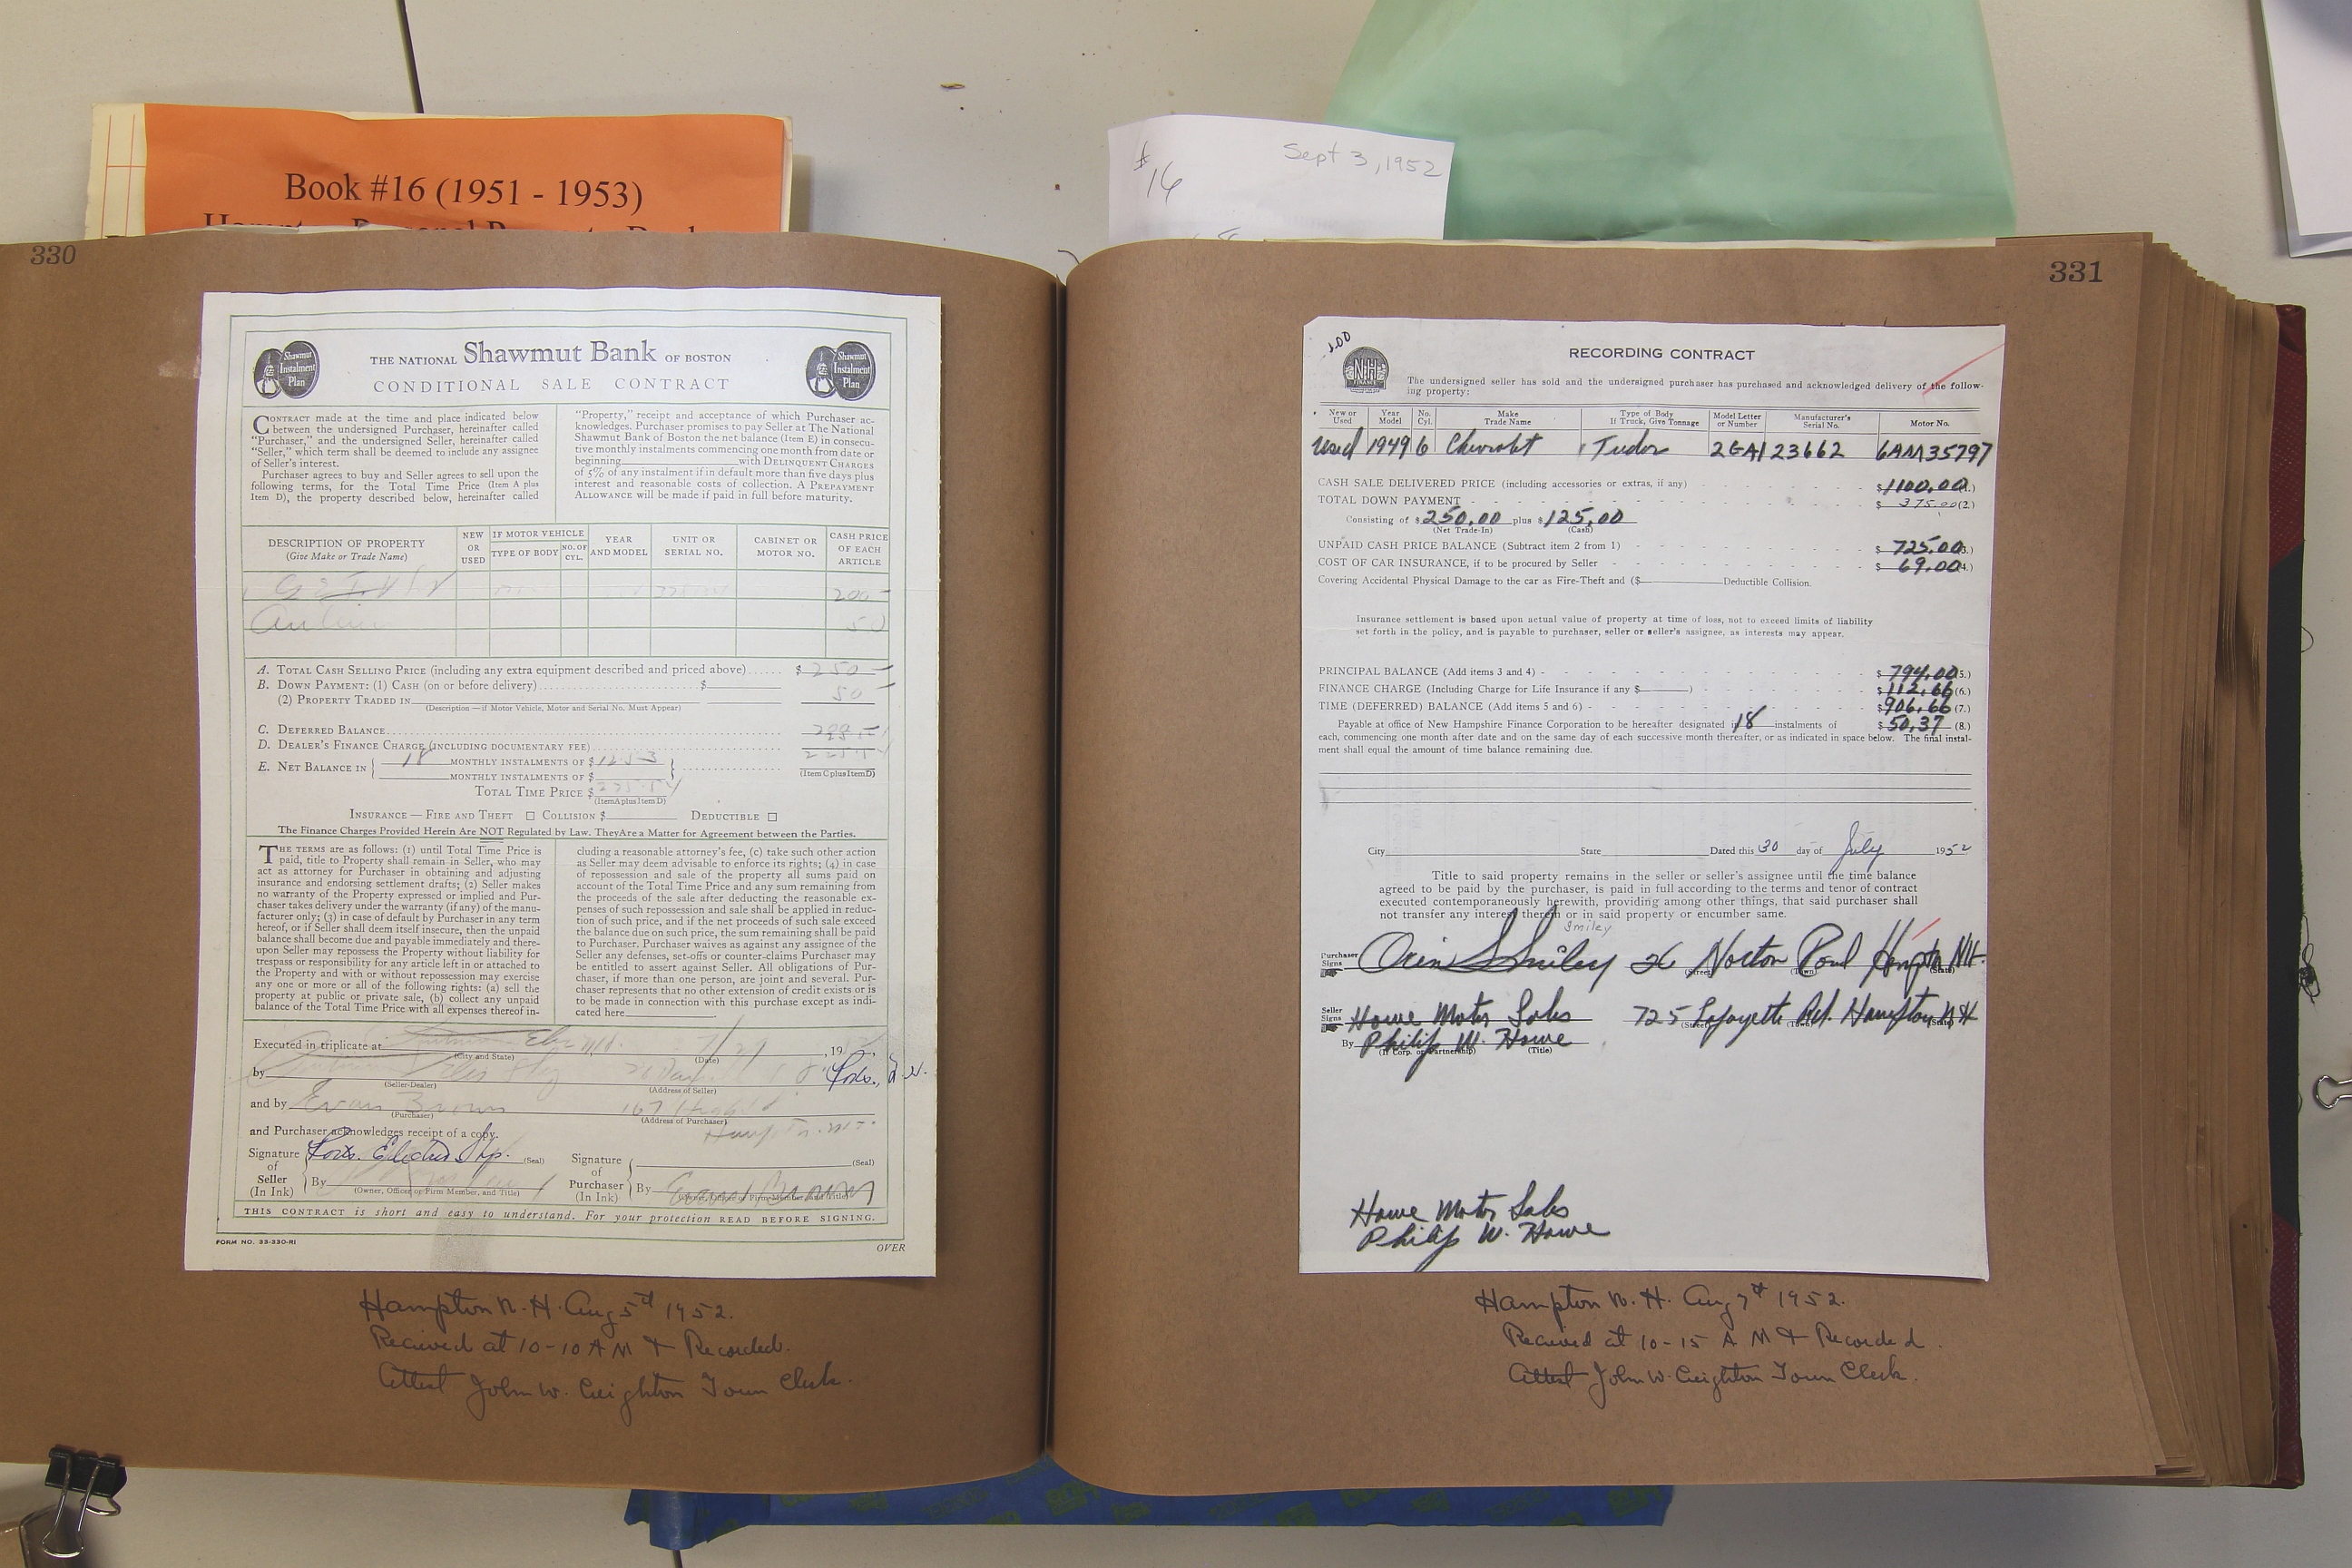 Book #16 (1951 - 1953)
# 16
Sept 3, 1952
330
331
THE NATIONAL Shawmut Bank OF BOSTON
CONDITIONAL SALE CONTRACT
Shawmut Instalment Plan
Shawmut Instalment Plan
CONTRACT made at the time and place indicated below
between the undersigned Purchaser, hereinafter called
"Purchaser," and the undersigned Seller, hereinafter called
"Seller," which term shall be deemed to include any assignee
of Seller's interest.
Purchaser agrees to buy and Seller agrees to sell upon the
following terms, for the Total Time Price (Item A plus
Item D), the property described below, hereinafter called
"Property," receipt and acceptance of which Purchaser ac-
knowledges. Purchaser promises to pay Seller at The National
Shawmut Bank of Boston the net balance (Item E) in consecu-
tive monthly instalments commencing one month from date or
beginning with DELINQUENT CHARGES
of 5% of any instalment if in default more than five days plus
interest and reasonable costs of collection. A PREPAYMENT
ALLOWANCE will be made if paid in full before maturity.
DESCRIPTION OF PROPERTY
(Give Make or Trade Name)
NEW OR USED
IF MOTOR VEHICLE
TYPE OF BODY
NO. OF CYL.
YEAR AND MODEL
UNIT OR SERIAL NO.
CABINET OR MOTOR NO.
CASH PRICE OF EACH ARTICLE
200-
50
A. TOTAL CASH SELLING PRICE (including any extra equipment described and priced above) $ 250-
B. DOWN PAYMENT: (1) CASH (on or before delivery) $
(2) PROPERTY TRADED IN 50-
(Description — if Motor Vehicle, Motor and Serial No. Must Appear)
C. DEFERRED BALANCE
D. DEALER'S FINANCE CHARGE (INCLUDING DOCUMENTARY FEE)
E. NET BALANCE IN 18 MONTHLY INSTALMENTS OF $ 12.53
MONTHLY INSTALMENTS OF $
(Item C plus Item D)
TOTAL TIME PRICE $
(Item A plus Item D)
INSURANCE — FIRE AND THEFT □ COLLISION $ DEDUCTIBLE □
The Finance Charges Provided Herein Are NOT Regulated by Law. They Are a Matter for Agreement between the Parties.
THE TERMS are as follows: (1) until Total Time Price is
paid, title to Property shall remain in Seller, who may
act as attorney for Purchaser in obtaining and adjusting
insurance and endorsing settlement drafts; (2) Seller makes
no warranty of the Property expressed or implied and Pur-
chaser takes delivery under the warranty (if any) of the manu-
facturer only; (3) in case of default by Purchaser in any term
hereof, or if Seller shall deem itself insecure, then the unpaid
balance shall become due and payable immediately and there-
upon Seller may repossess the Property without liability for
trespass or responsibility for any article left in or attached to
the Property and with or without repossession may exercise
any one or more or all of the following rights: (a) sell the
property at public or private sale, (b) collect any unpaid
balance of the Total Time Price with all expenses thereof in-
cluding a reasonable attorney's fee, (c) take such other action
as Seller may deem advisable to enforce its rights; (4) in case
of repossession and sale of the property all sums paid on
account of the Total Time Price and any sum remaining from
the proceeds of the sale after deducting the reasonable ex-
penses of such repossession and sale shall be applied in reduc-
tion of such price, and if the net proceeds of such sale exceed
the balance due on such price, the sum remaining shall be paid
to Purchaser. Purchaser waives as against any assignee of the
Seller any defenses, set-offs or counter-claims Purchaser may
be entitled to assert against Seller. All obligations of Pur-
chaser, if more than one person, are joint and several. Pur-
chaser represents that no other extension of credit exists or is
to be made in connection with this purchase except as indi-
cated here
Executed in triplicate at 7/29, 19
(City and State) (Date)
by
(Seller-Dealer) (Address of Seller)
and by Evan Brown 167 High St
(Purchaser) (Address of Purchaser)
Hampton. N.H.
and Purchaser acknowledges receipt of a copy.
Signature of Seller (In Ink)
(Seal)
By
(Owner, Officer or Firm Member, and Title)
Signature of Purchaser (In Ink)
(Seal)
By Evan Brown
(Owner, Officer or Firm Member, and Title)
THIS CONTRACT is short and easy to understand. For your protection READ BEFORE SIGNING.
FORM NO. 33-330-R1
OVER
Hampton N. H. Aug 5th 1952.
Recived at 10-10 A M & Recorded.
Attest John W. Creighton Town Clerk.
100
NH FINANCE
RECORDING CONTRACT
The undersigned seller has sold and the undersigned purchaser has purchased and acknowledged delivery of the follow-
ing property:
New or Used
Year Model
No. Cyl.
Make Trade Name
Type of Body If Truck, Give Tonnage
Model Letter or Number
Manufacturer's Serial No.
Motor No.
Used 1949 6 Chevrolet Tudor 2GA1 23662 6AM35797
CASH SALE DELIVERED PRICE (including accessories or extras, if any) $ 1100.00 (1.)
TOTAL DOWN PAYMENT $ 375.00 (2.)
Consisting of $ 250.00 plus $ 125.00
(Net Trade-In) (Cash)
UNPAID CASH PRICE BALANCE (Subtract item 2 from 1) $ 725.00 (3.)
COST OF CAR INSURANCE, if to be procured by Seller $ 69.00 (4.)
Covering Accidental Physical Damage to the car as Fire-Theft and ($ Deductible Collision.
Insurance settlement is based upon actual value of property at time of loss, not to exceed limits of liability
set forth in the policy, and is payable to purchaser, seller or seller's assignee, as interests may appear.
PRINCIPAL BALANCE (Add items 3 and 4) - $ 794.00 (5.)
FINANCE CHARGE (Including Charge for Life Insurance if any $ ) $ 112.66 (6.)
TIME (DEFERRED) BALANCE (Add items 5 and 6) - $ 906.66 (7.)
Payable at office of New Hampshire Finance Corporation to be hereafter designated in 18 instalments of $ 50.37 (8.)
each, commencing one month after date and on the same day of each successive month thereafter, or as indicated in space below. The final instal-
ment shall equal the amount of time balance remaining due.
City State Dated this 30 day of July 1952
Title to said property remains in the seller or seller's assignee until the time balance
agreed to be paid by the purchaser, is paid in full according to the terms and tenor of contract
executed contemporaneously herewith, providing among other things, that said purchaser shall
not transfer any interest therein or in said property or encumber same.
Smiley
Purchaser Signs Orin S Smiley 26 Norton Pond Hampton NH.
(Street) (Town) (State)
Seller Signs Howe Motor Sales 725 Lafayette Rd. Hampton N H
(Street) (Town) (State)
By Philip W. Howe
(If Corp. or Partnership) (Title)
Howe Motor Sales
Philip W. Howe
Hampton N. H. Aug 7th 1952.
Recived at 10-15 A M & Recorded.
Attest John W. Creighton Town Clerk.